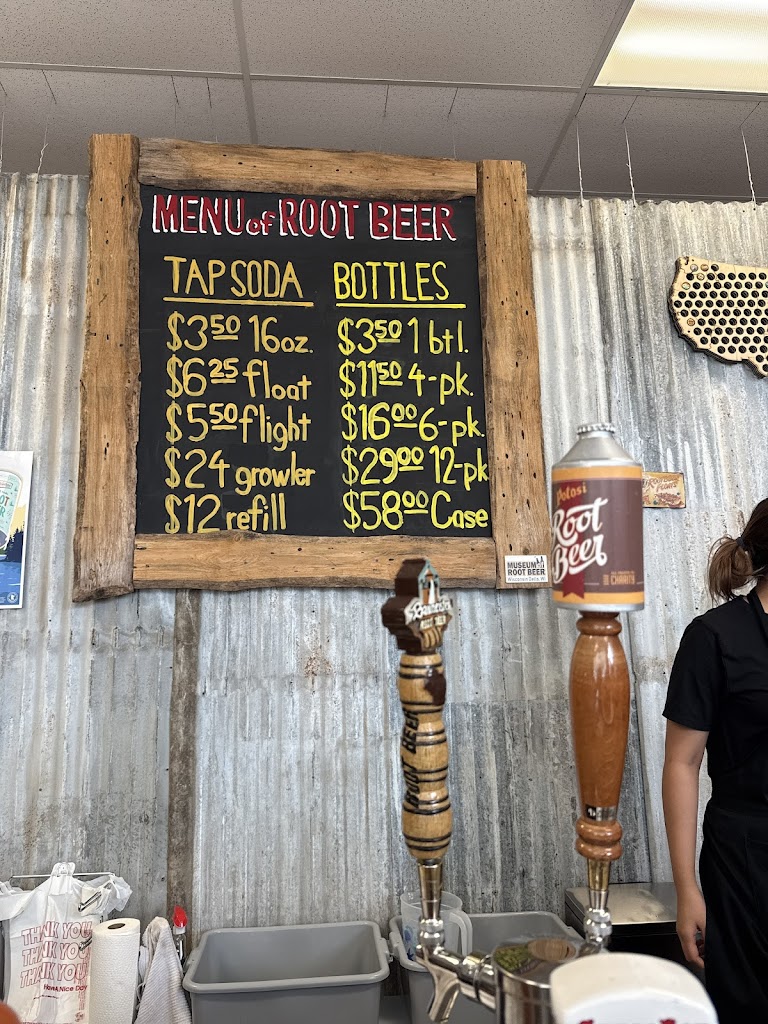 MENU of ROOT BEER
TAP SODA
$3.50 16oz.
$6.25 float
$5.50 flight
$24 growler
$12 refill
BOTTLES
$3.50 1 btl.
$11.50 4-pk.
$16.00 6-pk.
$29.00 12-pk
$58.00 Case
MUSEUM of
ROOT BEER
Wisconsin Dells, WI
Potosi
Root
Beer
CHARITY
ROOT BEER
ROOT BEER
THANK YOU
THANK YOU
THANK YOU
Have A Nice Day